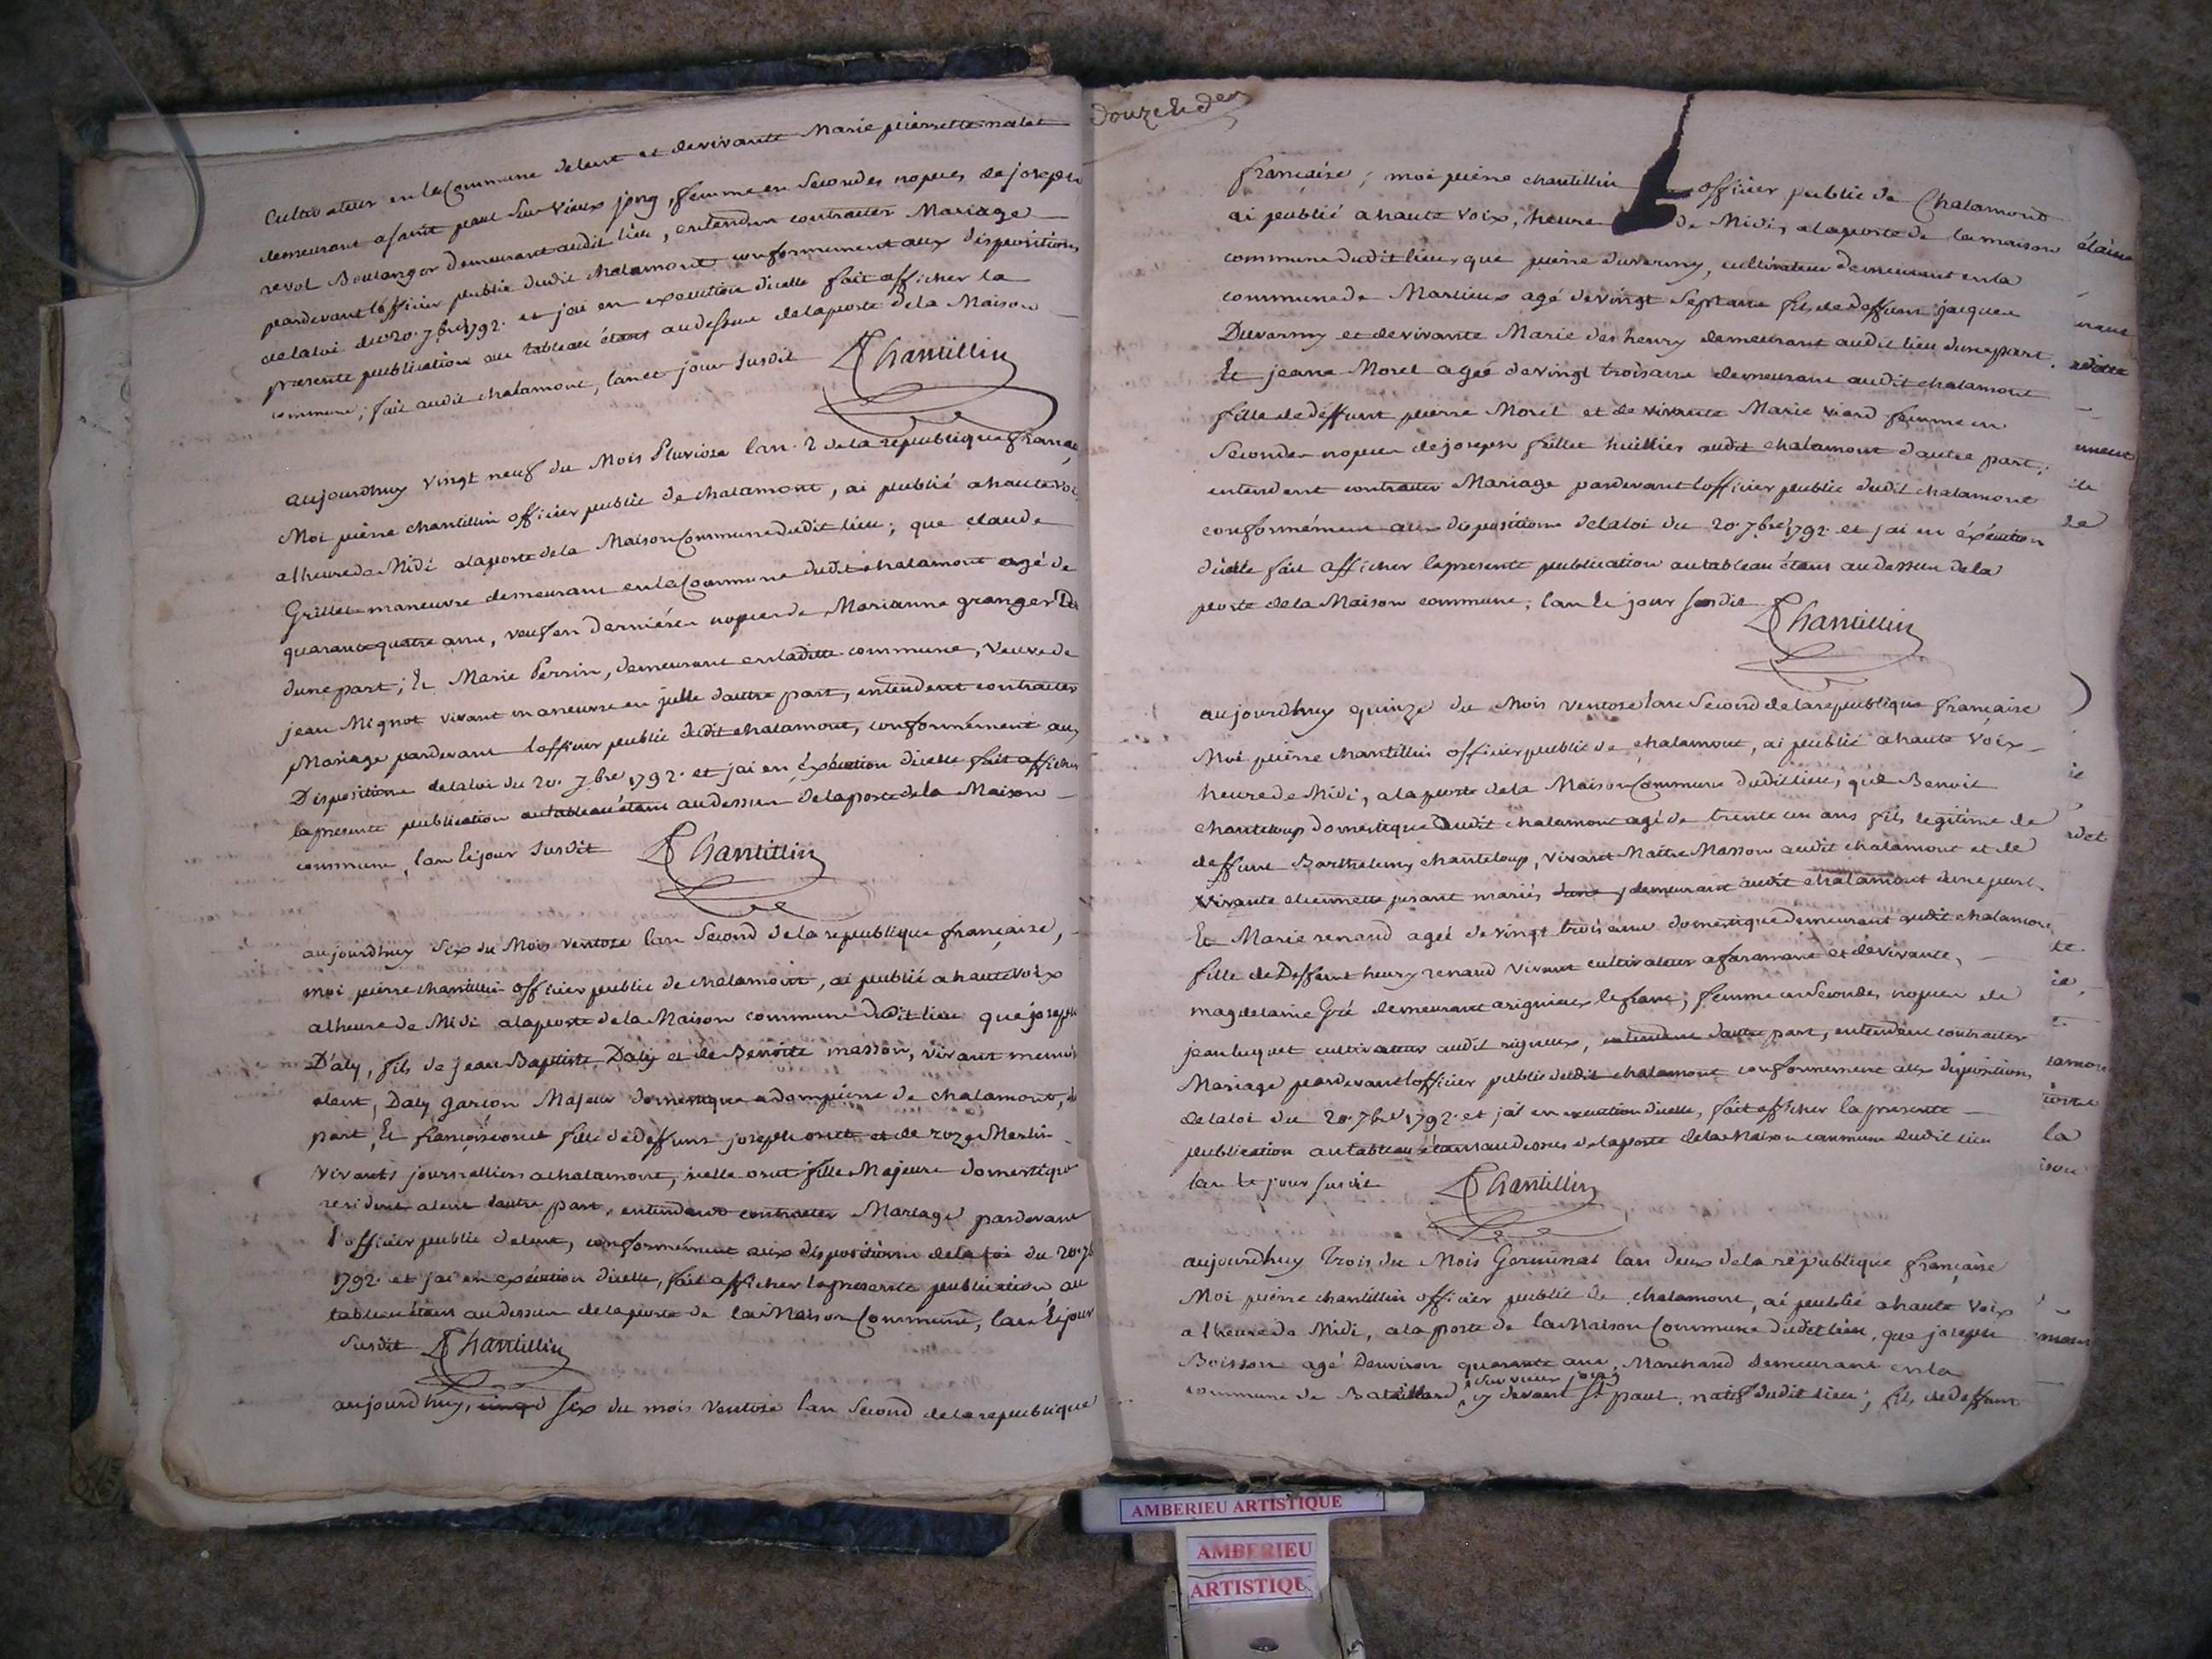 cultivateur en la Commune delent et devivante Marie pierrette
demeurant asaint paul Sur Vieux jong, femme en Secondes nopces de joseph
revol Boulanger demeurant audit lieu, entenden contracter Mariage
pardevant lofficier public dudit chalamont conformement aux dispositions
delaloi du 20. 7bre 1792. et jai en execution dicelle fait afficher la
presente publication au tableau étant audessus delaporte dela Maison
commune; fait audit chalamont, lan et jour susdit PChantillin
aujourdhuy vingt neuf du Mois Pluviose lan 2 dela republique française
Moi pierre chantillin officier public de chalamont, ai publié ahaute voix
alheure de Midi alaporte dela Maison Commune dudit lieu; que claude
Grillet maneuvre demeurant en la Commune dudit chalamont agé de
quarante quatre ans, veuf en derniéres nopces de Marianne granger
dune part; Et Marie Perrin, demeurant en laditte commune, Veuve de
jean Mignot vivant maneuvre en jcelle dautre part, entendent contracter
Mariage pardevant lofficier public dudit chalamont, conformément aux
Dispositions delaloi du 20. 7bre 1792. et jai en éxécution dicelle fait afficher
la presente publication autableau étant audessus delaporte dela Maison
commune, lan Et jour susdit PChantillin
aujourdhuy Six du Mois Ventose lan Second dela republique française,
moi pierre chantillin officier public de chalamont, ai publié ahaute voix
alheure de Midi alaporte dela Maison commune dudit lieu que joseph
D'aly, fils de jean Baptiste Daly et de Benoite masson, vivant
alent, Daly garçon Majeur domestique adompierre de chalamont,
part, Et françoise fille dedeffunt joseph et de roze Merlin
vivants journalliers achalamont, icelle fille Majeure domestique
resident alent dautre part, entendent contracter Mariage pardevant
l'officier public delent, conformément aux dispositions dela loi du 20. 7b
1792. et jai en exécution dicelle, fait afficher lapresente publication au
tableau étant audessus delaporte de la Maison Commune, lan Et jour
Susdit PChantillin
aujourdhuy, six du mois Ventose lan Second delarepublique
douze
française; moi pierre chantillin officier public de Chalamont
ai publié ahaute voix, heure de Midi, alaporte de la maison
commune dudit lieu, que pierre duvermy, cultivateur demeurant en la
commune de Marlieux agé de vingt Sept ans fils dedeffunt jacques
Duvermy et devivante Marie des henry demeurant audit lieu dune part.
Et jeanne Morel agée devingt trois ans demeurant audit chalamont
fille dedéffunt pierre Morel et de vivante Marie viard femme en
Secondes nopces dejoseph fillet huillier audit chalamont dautre part;
entendent contracter Mariage pardevant lofficier public dudit chalamont
conformément aux dispositions delaloi du 20. 7bre 1792. et jai en éxécution
dicelle fait afficher lapresente publication autableau étant audessus dela
porte dela Maison commune, lan Et jour susdit
PChantillin
aujourdhuy quinze du Mois ventose lan Second delarepublique française
Moi pierre chantillin officier public de chalamont, ai publié ahaute voix
heure de Midi, alaporte dela Maison Commune dudit lieu; que Benoit
chanteloup domestique audit chalamont agé de trente un ans fils légitime de
deffunt Barthelemy chanteloup, vivant Maitre Masson audit chalamont et de
vivante etiennette mariés demeurant audit chalamont dune part.
Et Marie renand agée de vingt trois ans domestique demeurant audit chalamont
fille de Deffunt henry renand vivant cultivateur afaramant et devivante,
magdelaine Gré demeurant arignieux lefranc; femme en Secondes nopces de
jean luquet cultivateur audit rignieux, dautre part, entendent contracter
Mariage pardevant lofficier public dudit chalamont conformement aux dispositions
delaloi du 20. 7bre 1792. et jai en execution dicelle, fait afficher la presente
publication autableau étant audessus delaporte dela Maison commune dudit lieu
lan Et jour susdit PChantillin
aujourdhuy Trois du Mois Germinal lan deux dela république française
Moi pierre chantillin officier public de chalamont, ai publié ahaute voix
a lheure de Midi, alaporte de la Maison Commune dudit lieu, que joseph
Boisson agé denviron quarante ans, Marchand demeurant en la
sur vieux jong
commune de Bataillard, cy devant St paul, natif dudit lieu; fils dedeffunt
AMBERIEU ARTISTIQUE
AMBERIEU
ARTISTIQUE